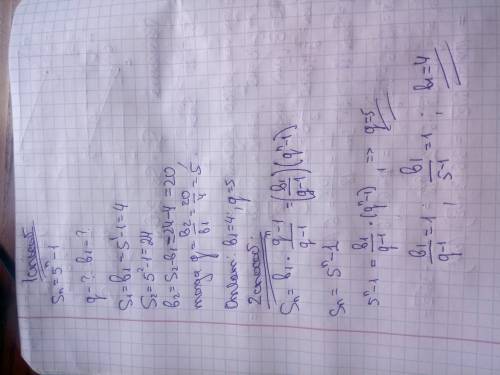 1 способ
Sn = 5ⁿ - 1
q - ? b₁ - ?
S₁ = b₁ = 5¹ - 1 = 4
S₂ = 5² - 1 = 24
b₂ = S₂ - b₁ = 24 - 4 = 20
тогда q = b₂/b₁ = 20/4 = 5.
Ответ: b₁ = 4; q = 5
2 способ.
Sn = b₁ · (qⁿ - 1)/(q - 1) = (b₁/(q - 1))(qⁿ - 1)
Sn = 5ⁿ - 1
5ⁿ - 1 = b₁/(q - 1) · (qⁿ - 1) , => q = 5
b₁/(q - 1) = 1 ; b₁/(5 - 1) = 1 ; b₁ = 4